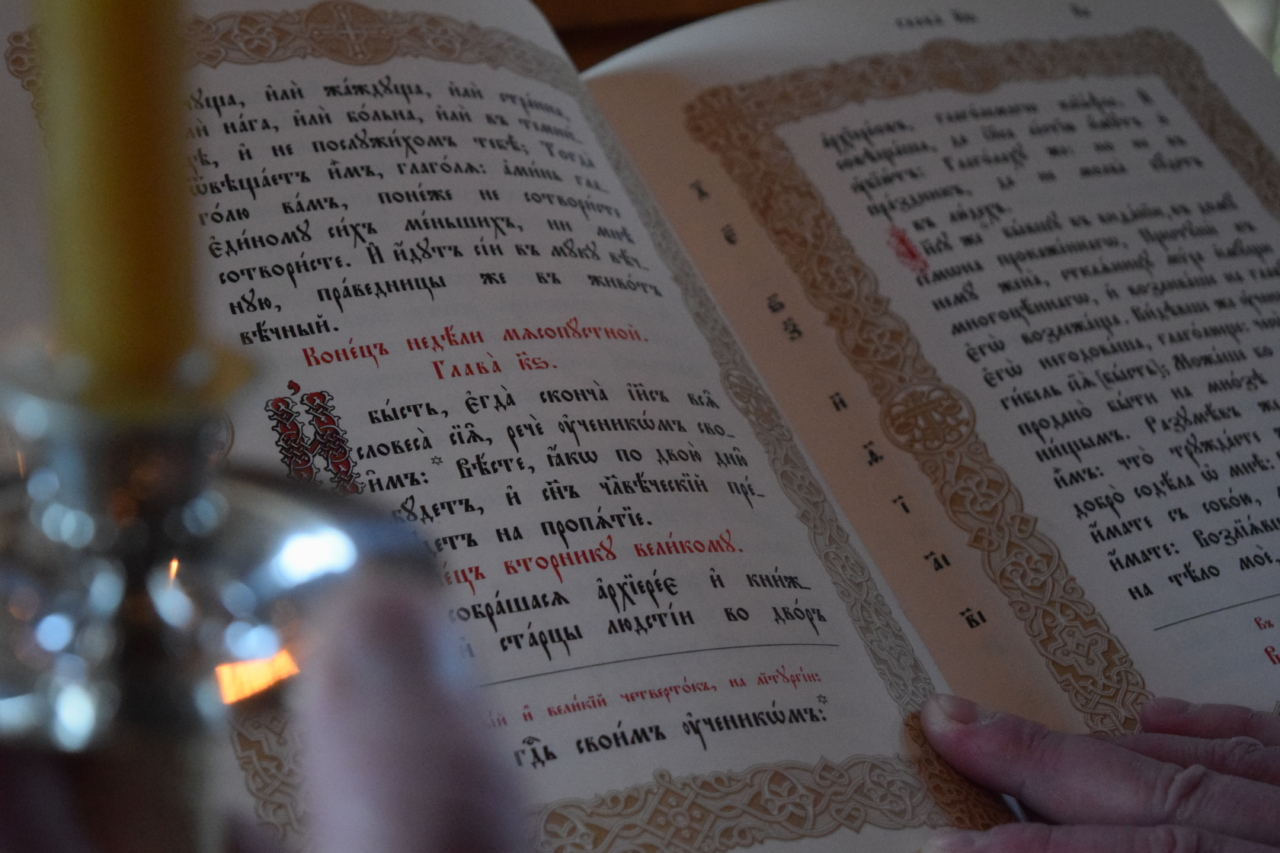 и҆лѝ жа́ждꙋща, и҆лѝ стра́нна,
на́га, и҆лѝ бо́льна, и҆лѝ въ темни́
и҆ не послꙋжи́хомъ тебѣ̀; Тогда̀
ѿвѣща́етъ и҆̀мъ, глаго́лѧ: а҆ми́нь гла-
го́лю ва́мъ, поне́же не сотвори́сте
є҆ди́номꙋ си́хъ ме́ньшихъ, ни мнѣ̀
сотвори́сте. И҆ и҆́дꙋтъ сі́и въ мꙋ́кꙋ вѣ́ч-
нꙋю, пра́ведницы же въ живо́тъ
вѣ́чный.
Коне́цъ недѣ́ли мѧсопꙋ́стной.
Глава̀ к҃ѕ.
И҆ бы́сть, є҆гда̀ сконча̀ і҆и҃съ всѧ̑
словеса̀ сїѧ̑, речѐ ᲂу҆ченикѡ́мъ сво-
и҆̀мъ: * Вѣ́сте, ꙗ҆́кѡ по двою̀ дні́ю
бꙋ́детъ, и҆ сн҃ъ чл҃вѣ́ческїй пре-
на пропѧ́тїе.
вто́рникꙋ вели́комꙋ.
собра́шасѧ а҆рхїере́є и҆ кни́ж-
ста́рцы людсті́и во дво́ръ
и҆ вели́кїй четверто́къ, на лїтꙋргі́и:
гдⷭ҇ь свои̑мъ ᲂу҆ченикѡ́мъ: *
глава̀
глаго́лемагѡ каїа́фы. И҆
совѣща́ша, да і҆и҃са ле́стїю и҆́мꙋтъ и҆
ᲂу҆бїю́тъ: Глаго́лахꙋ же: но не въ
пра́здникъ, да не молва̀ бꙋ́детъ
въ лю́дехъ.
І҆и҃сꙋ же бы́вшꙋ въ виѳа́нїи, въ домꙋ̀
сі́мѡна прокаже́ннагѡ, Пристꙋпѝ къ
немꙋ̀ жена̀, сткла́ницꙋ мѵ́ра и҆мꙋ́щи
многоцѣ́ннагѡ, и҆ возлива́ше на главꙋ̀
є҆гѡ̀ возлежа́ща. Ви́дѣвше же ᲂу҆чени
є҆гѡ̀ негодова́ша, глаго́люще: чесѡ̀
ги́бель сїѧ̀ [бы́сть]; Можа́ше бо
про́дано бы́ти на мно́зѣ
ни́щымъ. Разꙋмѣ́въ же
и҆̀мъ: что̀ трꙋжда́ете
добро̀ содѣ́ла ѡ҆ мнѣ̀:
и҆́мате съ собо́ю,
и҆́мате: Возлїѧ́вши
на тѣ́ло моѐ,
Въ
д҃
є҃
ѕ҃
з҃
и҃
ѳ҃
і҃
а҃і
в҃і